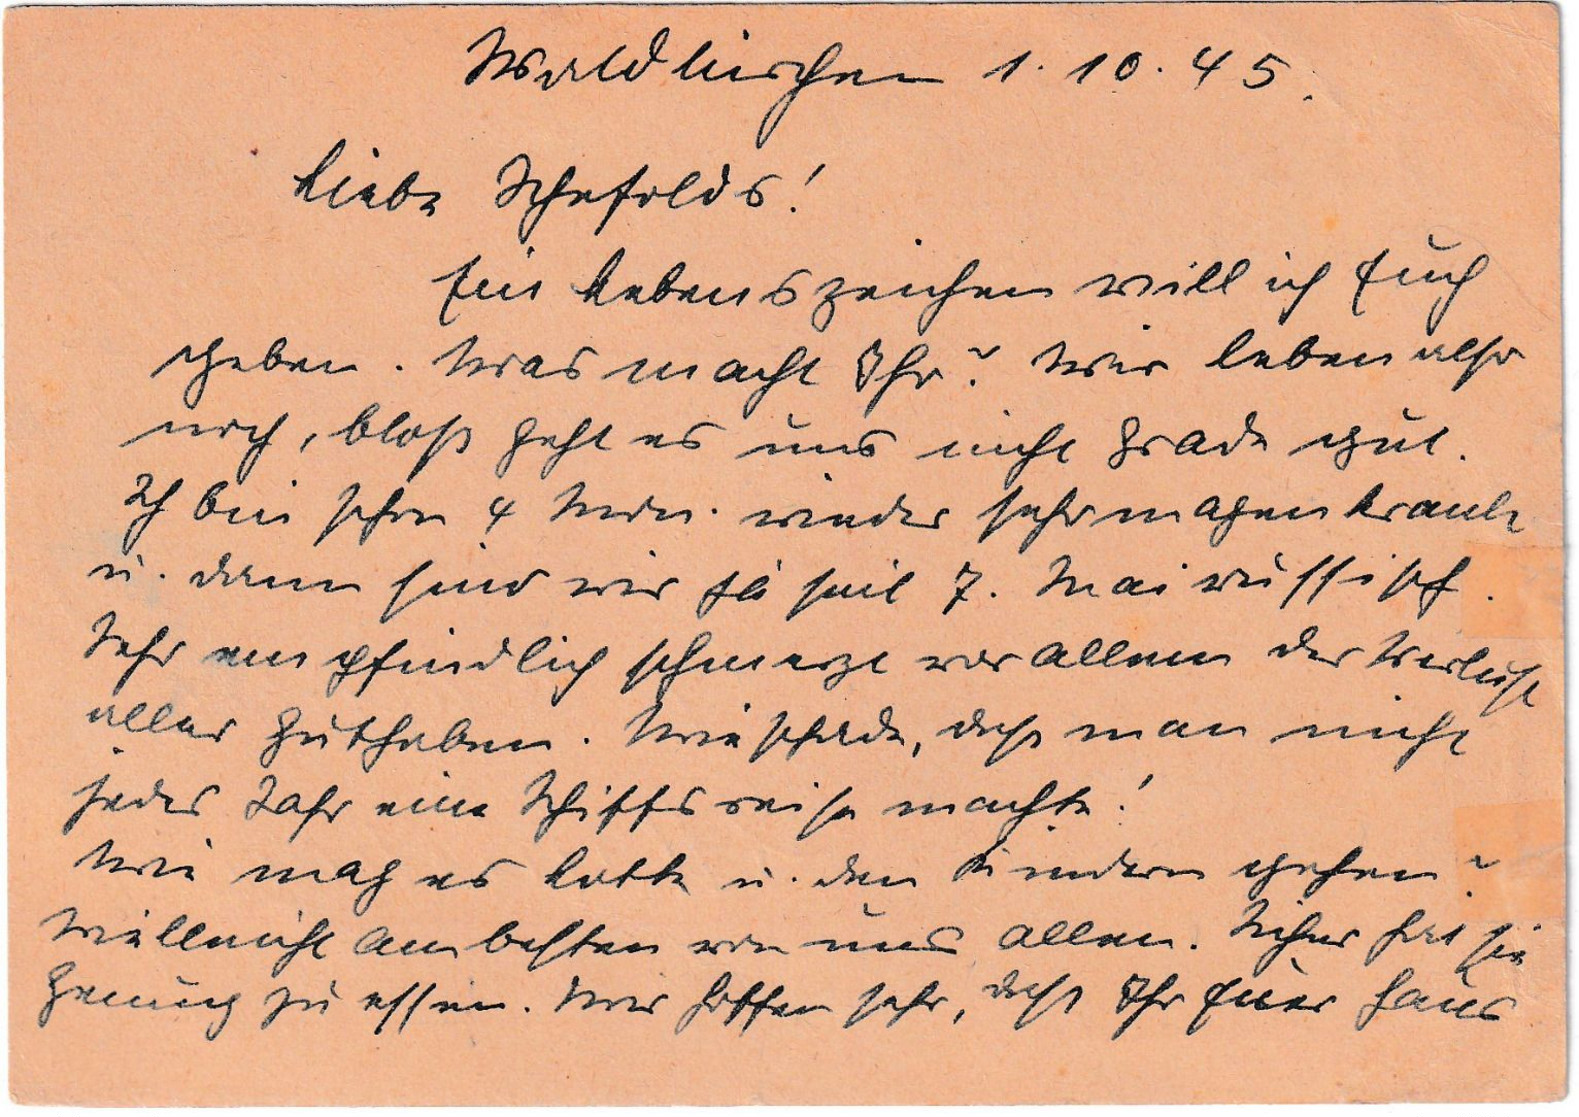 Waldkirchen 1.10.45.
Liebe Schefolds!
Ein Lebenszeichen will ich Euch
geben. Was macht Ihr? Wir leben also
noch, bloß geht es uns nicht grade gut.
Ich bin schon 4 Wch. wieder sehr magenkrank
u. dann sind wir ja seit 7. Mai russisch.
Sehr empfindlich schmerzt vor allem der Verlust
aller Guthaben. Wie schade, daß man nicht
jedes Jahr eine Schiffsreise machte!
Wie mag es Lotte u. den Kindern gehen?
Vielleicht am besten von uns allen. Sicher hat sie
genung zu essen. Wir hoffen sehr, daß Ihr Euer Haus